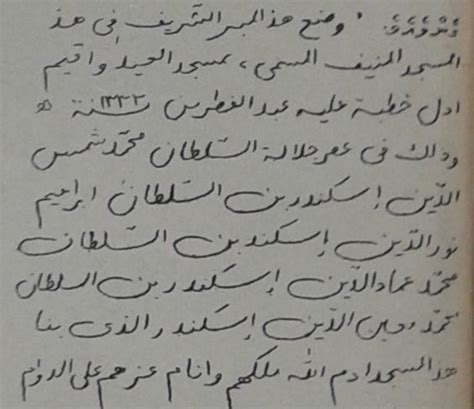 ވެއްޖެއެވެ. ' وضع هذا المبر الشريف فى هذ
المسجد المنيف المسمى، بمسجد العيد واقيم
اول خطبة عليه عيد الفطر من سنة ١٣٣٣ ه
وذلك فى عصر جلالة السّلطان محمّد شمس
الدّين إسكندر بن السّلطان ابراهيم
نورالدّين إسكند بن السّلطان
محمّد عماد الدّين إسكندر بن السلطان
محمّد معين الدّين إسكندر الذى بنا
هذ المسجد ادم الله ملكهم وانام عزهم على الدوام